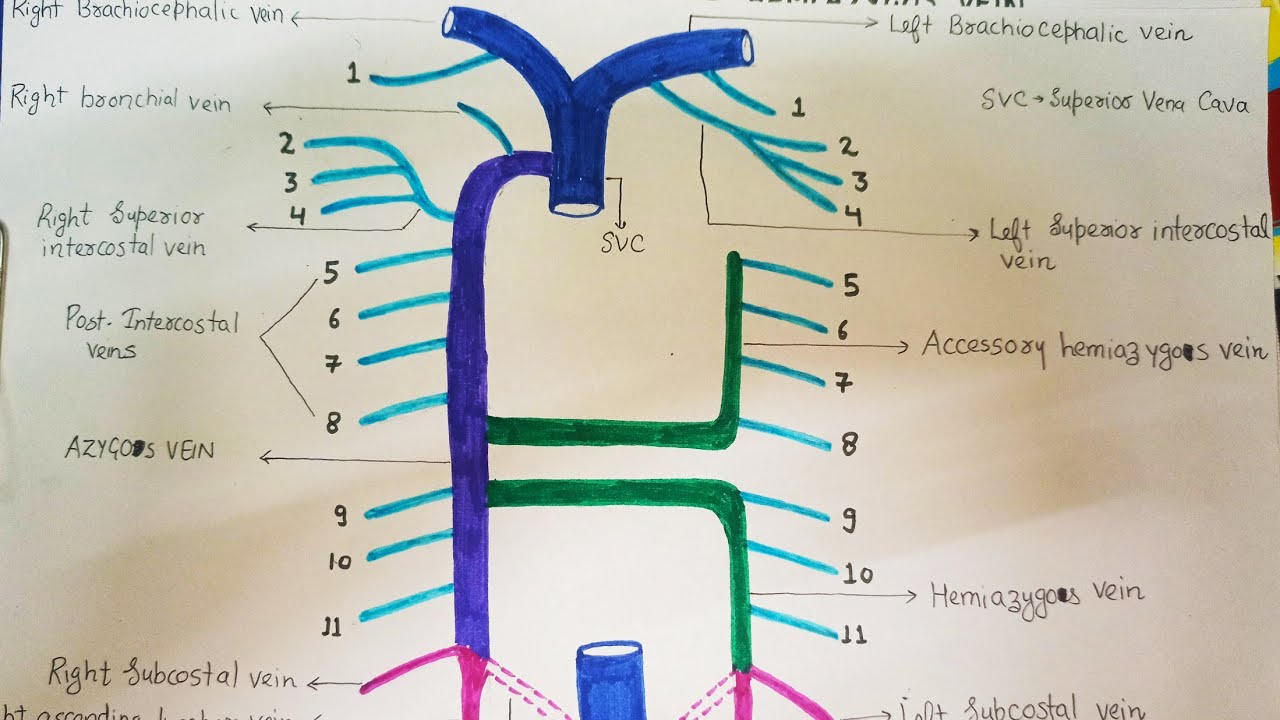 Right Brachiocephalic vein
Left Brachiocephalic vein
1
Right bronchial vein
1
SVC → Superior Vena Cava
2
3
4
2
3
4
Right Superior
intercostal vein
SVC
Left Superior intercostal
vein
5
6
7
8
Post. Intercostal
veins
5
6
7
8
Accessory hemiazygos vein
AZYGOS VEIN
9
10
11
9
10
11
Hemiazygos vein
Right Subcostal vein
Left Subcostal vein